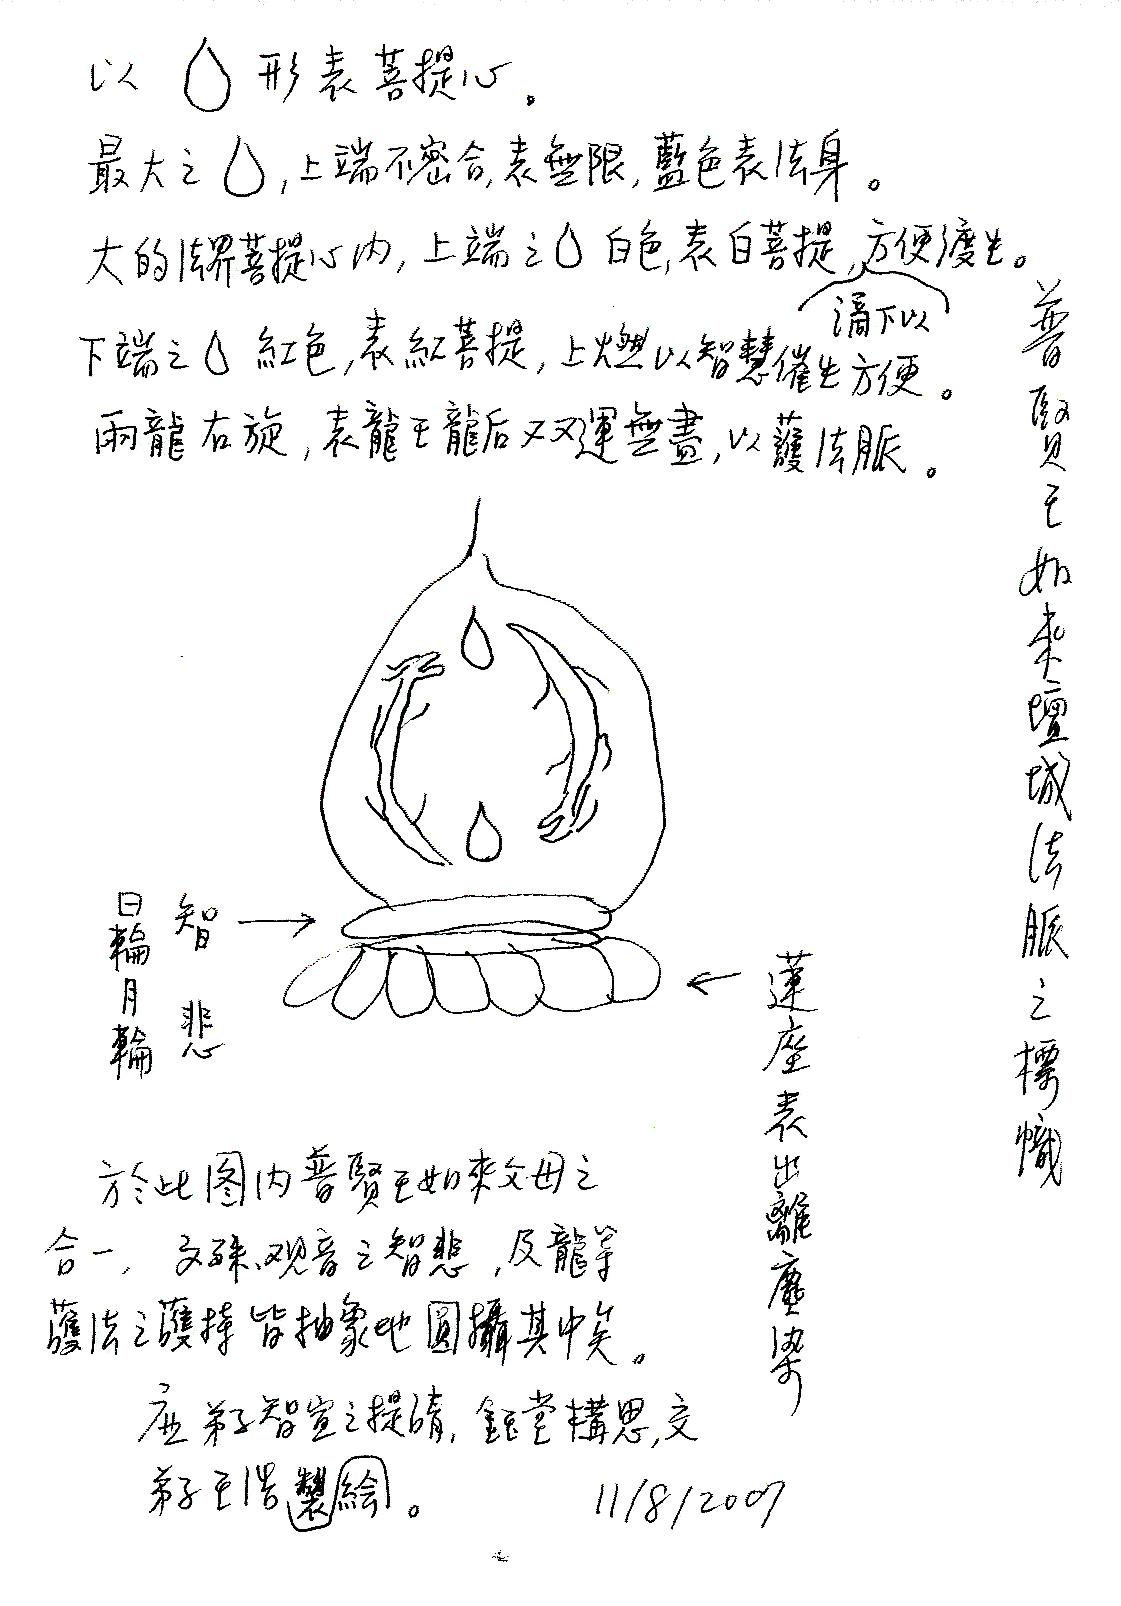 普賢王如來壇城法脈之標幟
以 形表菩提心。
最大之 ,上端不密合,表無限,藍色表法身。
大的法界菩提心內,上端之 白色,表白菩提,方便渡生。
滴下以
下端之 紅色,表紅菩提,上燃以智慧催生方便。
兩龍右旋,表龍王龍后双运無盡,以護法脈。
日輪 智
月輪 悲
蓮座表出離塵染
於此图内普賢王如來父母之
合一,文殊、观音之智悲,及龍等
護法之護持皆抽象地圓攝其中矣。
应弟子智宣之提請,鈺堂構思,交
弟子王浩製繪。
11/8/2007